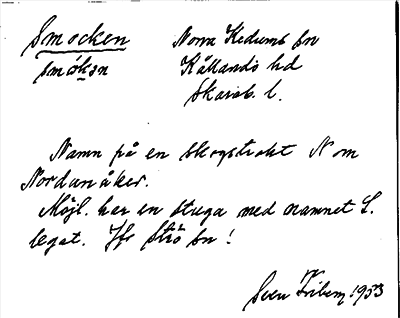 Smocken
smökən
Norra Kedums sn
Kållands hd
Skarab. l.
Namn på en skogstrakt N om
Nordanåker.
Möjl. har en stuga med namnet S.
legat. Jfr Strö sn!
Sven 1953